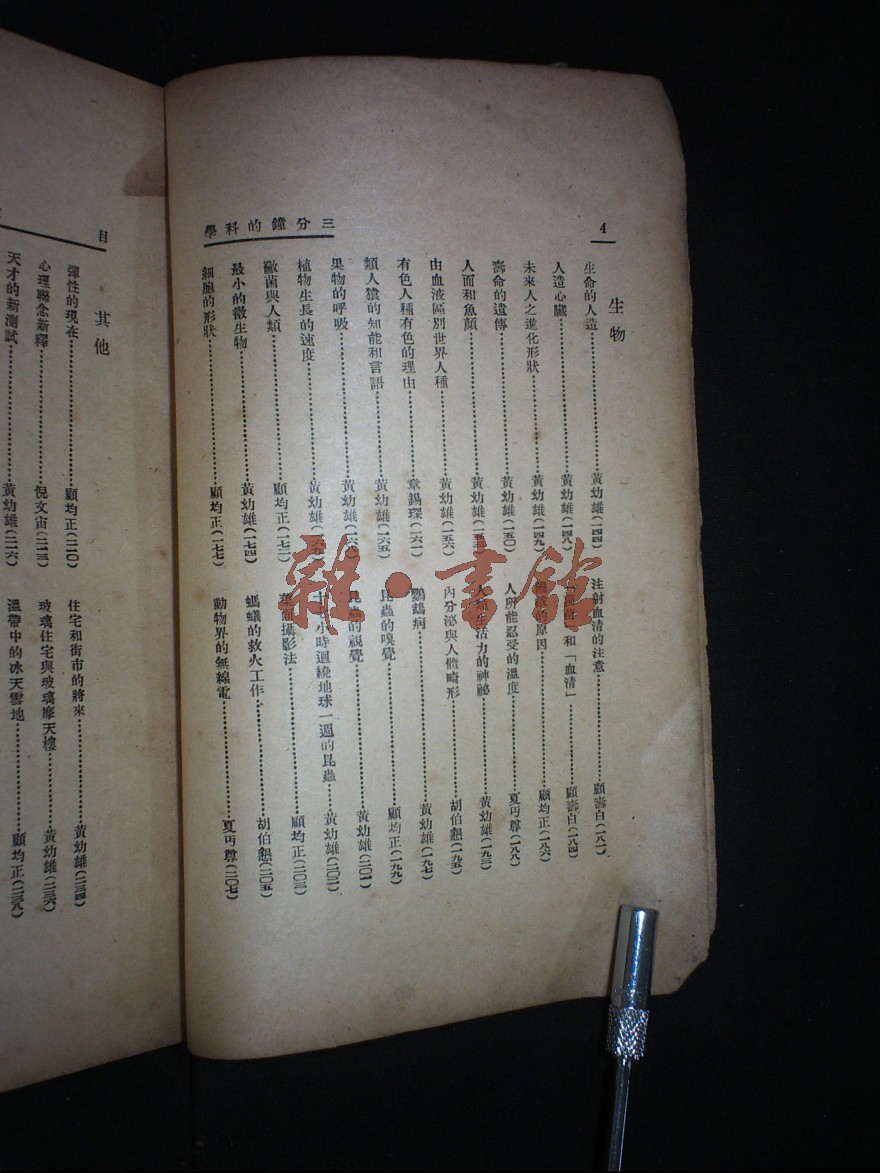 三分鐘的科學
4
生物
生命的人造 黃幼雄(一四四)
人造心臟 黃幼雄(一四八)
未來人之進化形狀 黃幼雄(一四九)
壽命的遺傳 黃幼雄(一五〇)
人面和魚顏 黃幼雄
由血液區別世界人種 黃幼雄(一五六)
有色人種有色的理由 章錫琛(一六一)
類人猿的知能和言語 黃幼雄(一六五)
果物的呼吸 黃幼雄(一六八)
植物生長的速度 黃幼雄(一六九)
黴菌與人類 顧均正(一七二)
最小的微生物 黃幼雄(一七四)
細胞的形狀 顧均正(一七七)
注射血清的注意 顧壽白(一八一)
和「血清」 顧壽白(一八四)
的原因 顧均正(一八六)
人所能忍受的溫度 夏丏尊(一八八)
人類生活力的神祕 黃幼雄(一九三)
內分泌與人體畸形 胡伯懇(一九五)
鸚鵡病 黃幼雄(一九七)
昆蟲的嗅覺 顧均正(一九九)
昆蟲的視覺 黃幼雄(二〇一)
小時迴繞地球一週的昆蟲 黃幼雄(二〇二)
葉面攝影法 顧均正(二〇三)
螞蟻的救火工作 胡伯懇(二〇五)
動物界的無線電 夏丏尊(二〇七)
目
其他
彈性的現在 顧均正(二一〇)
心理聯念新釋 倪文宙(二一三)
天才的新測試 黃幼雄(二一六)
住宅和街市的將來 黃幼雄(二三四)
玻璃住宅與玻璃摩天樓 黃幼雄(二三六)
溫帶中的冰天雪地 顧均正(二三八)
雜·書館